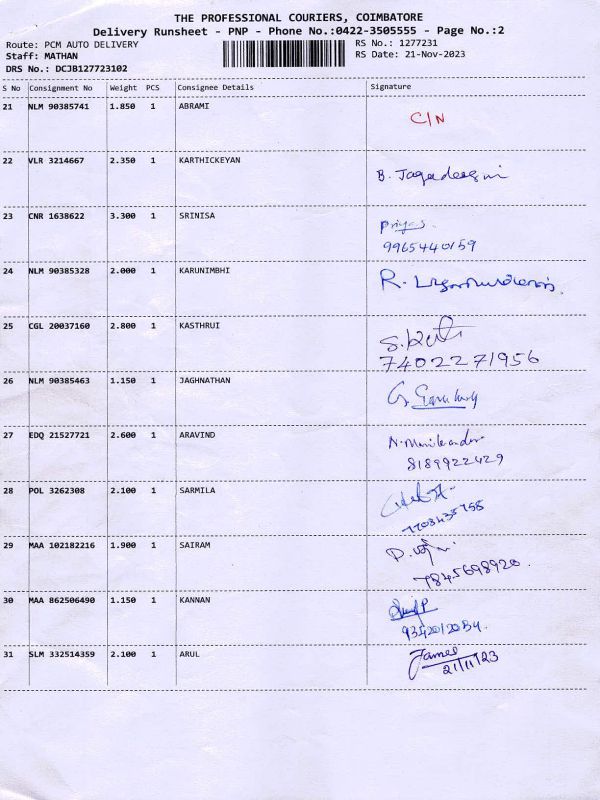 THE PROFESSIONAL COURIERS, COIMBATORE
Delivery Runsheet - PNP - Phone No.:0422-3505555 - Page No.:2
Route: PCM AUTO DELIVERY
RS No.: 1277231
Staff: MATHAN
RS Date: 21-Nov-2023
DRS No.: DCJB127723102
S No Consignment No Weight PCS Consignee Details Signature
21 NLM 90385741 1.850 1 ABRAMI
C/N
22 VLR 3214667 2.350 1 KARTHICKEYAN
B.
23 CNR 1638622 3.300 1 SRINISA
9965440159
24 NLM 90385328 2.000 1 KARUNIMBHI
R.
25 CGL 20037160 2.800 1 KASTHRUI
7402271956
26 NLM 90385463 1.150 1 JAGHNATHAN
27 EDQ 21527721 2.600 1 ARAVIND
8189922429
28 POL 3262308 2.100 1 SARMILA
29 MAA 102182216 1.900 1 SAIRAM
7845698920
30 MAA 862506490 1.150 1 KANNAN
31 SLM 332514359 2.100 1 ARUL
James
21/11/23